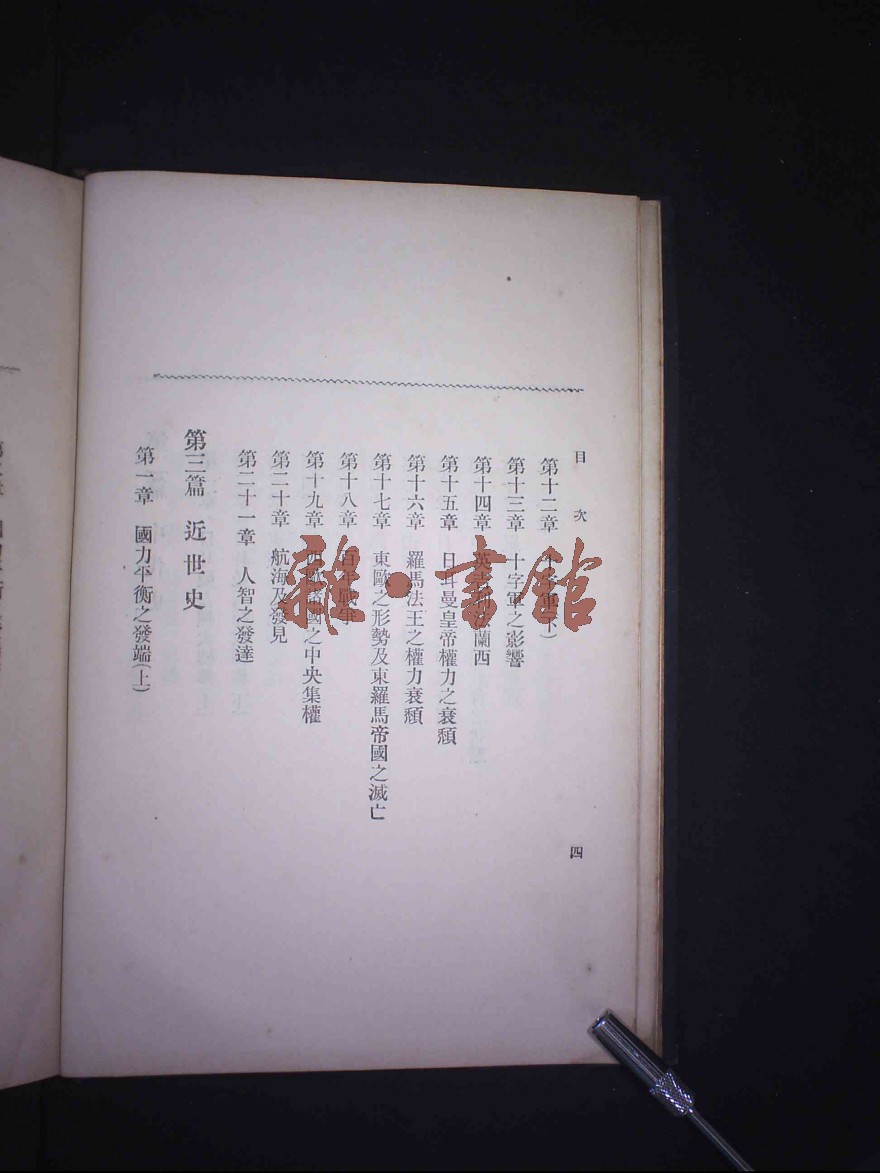 目次
四
第十二章 十字軍(下)
第十三章 十字軍之影響
第十四章 英吉利法蘭西
第十五章 日耳曼皇帝權力之衰頹
第十六章 羅馬法王之權力衰頹
第十七章 東歐之形勢及東羅馬帝國之滅亡
第十八章 百年戰爭
第十九章 西歐諸國之中央集權
第二十章 航海及發見
第二十一章 人智之發達
第三篇 近世史
第一章 國力平衡之發端(上)
雜·書館